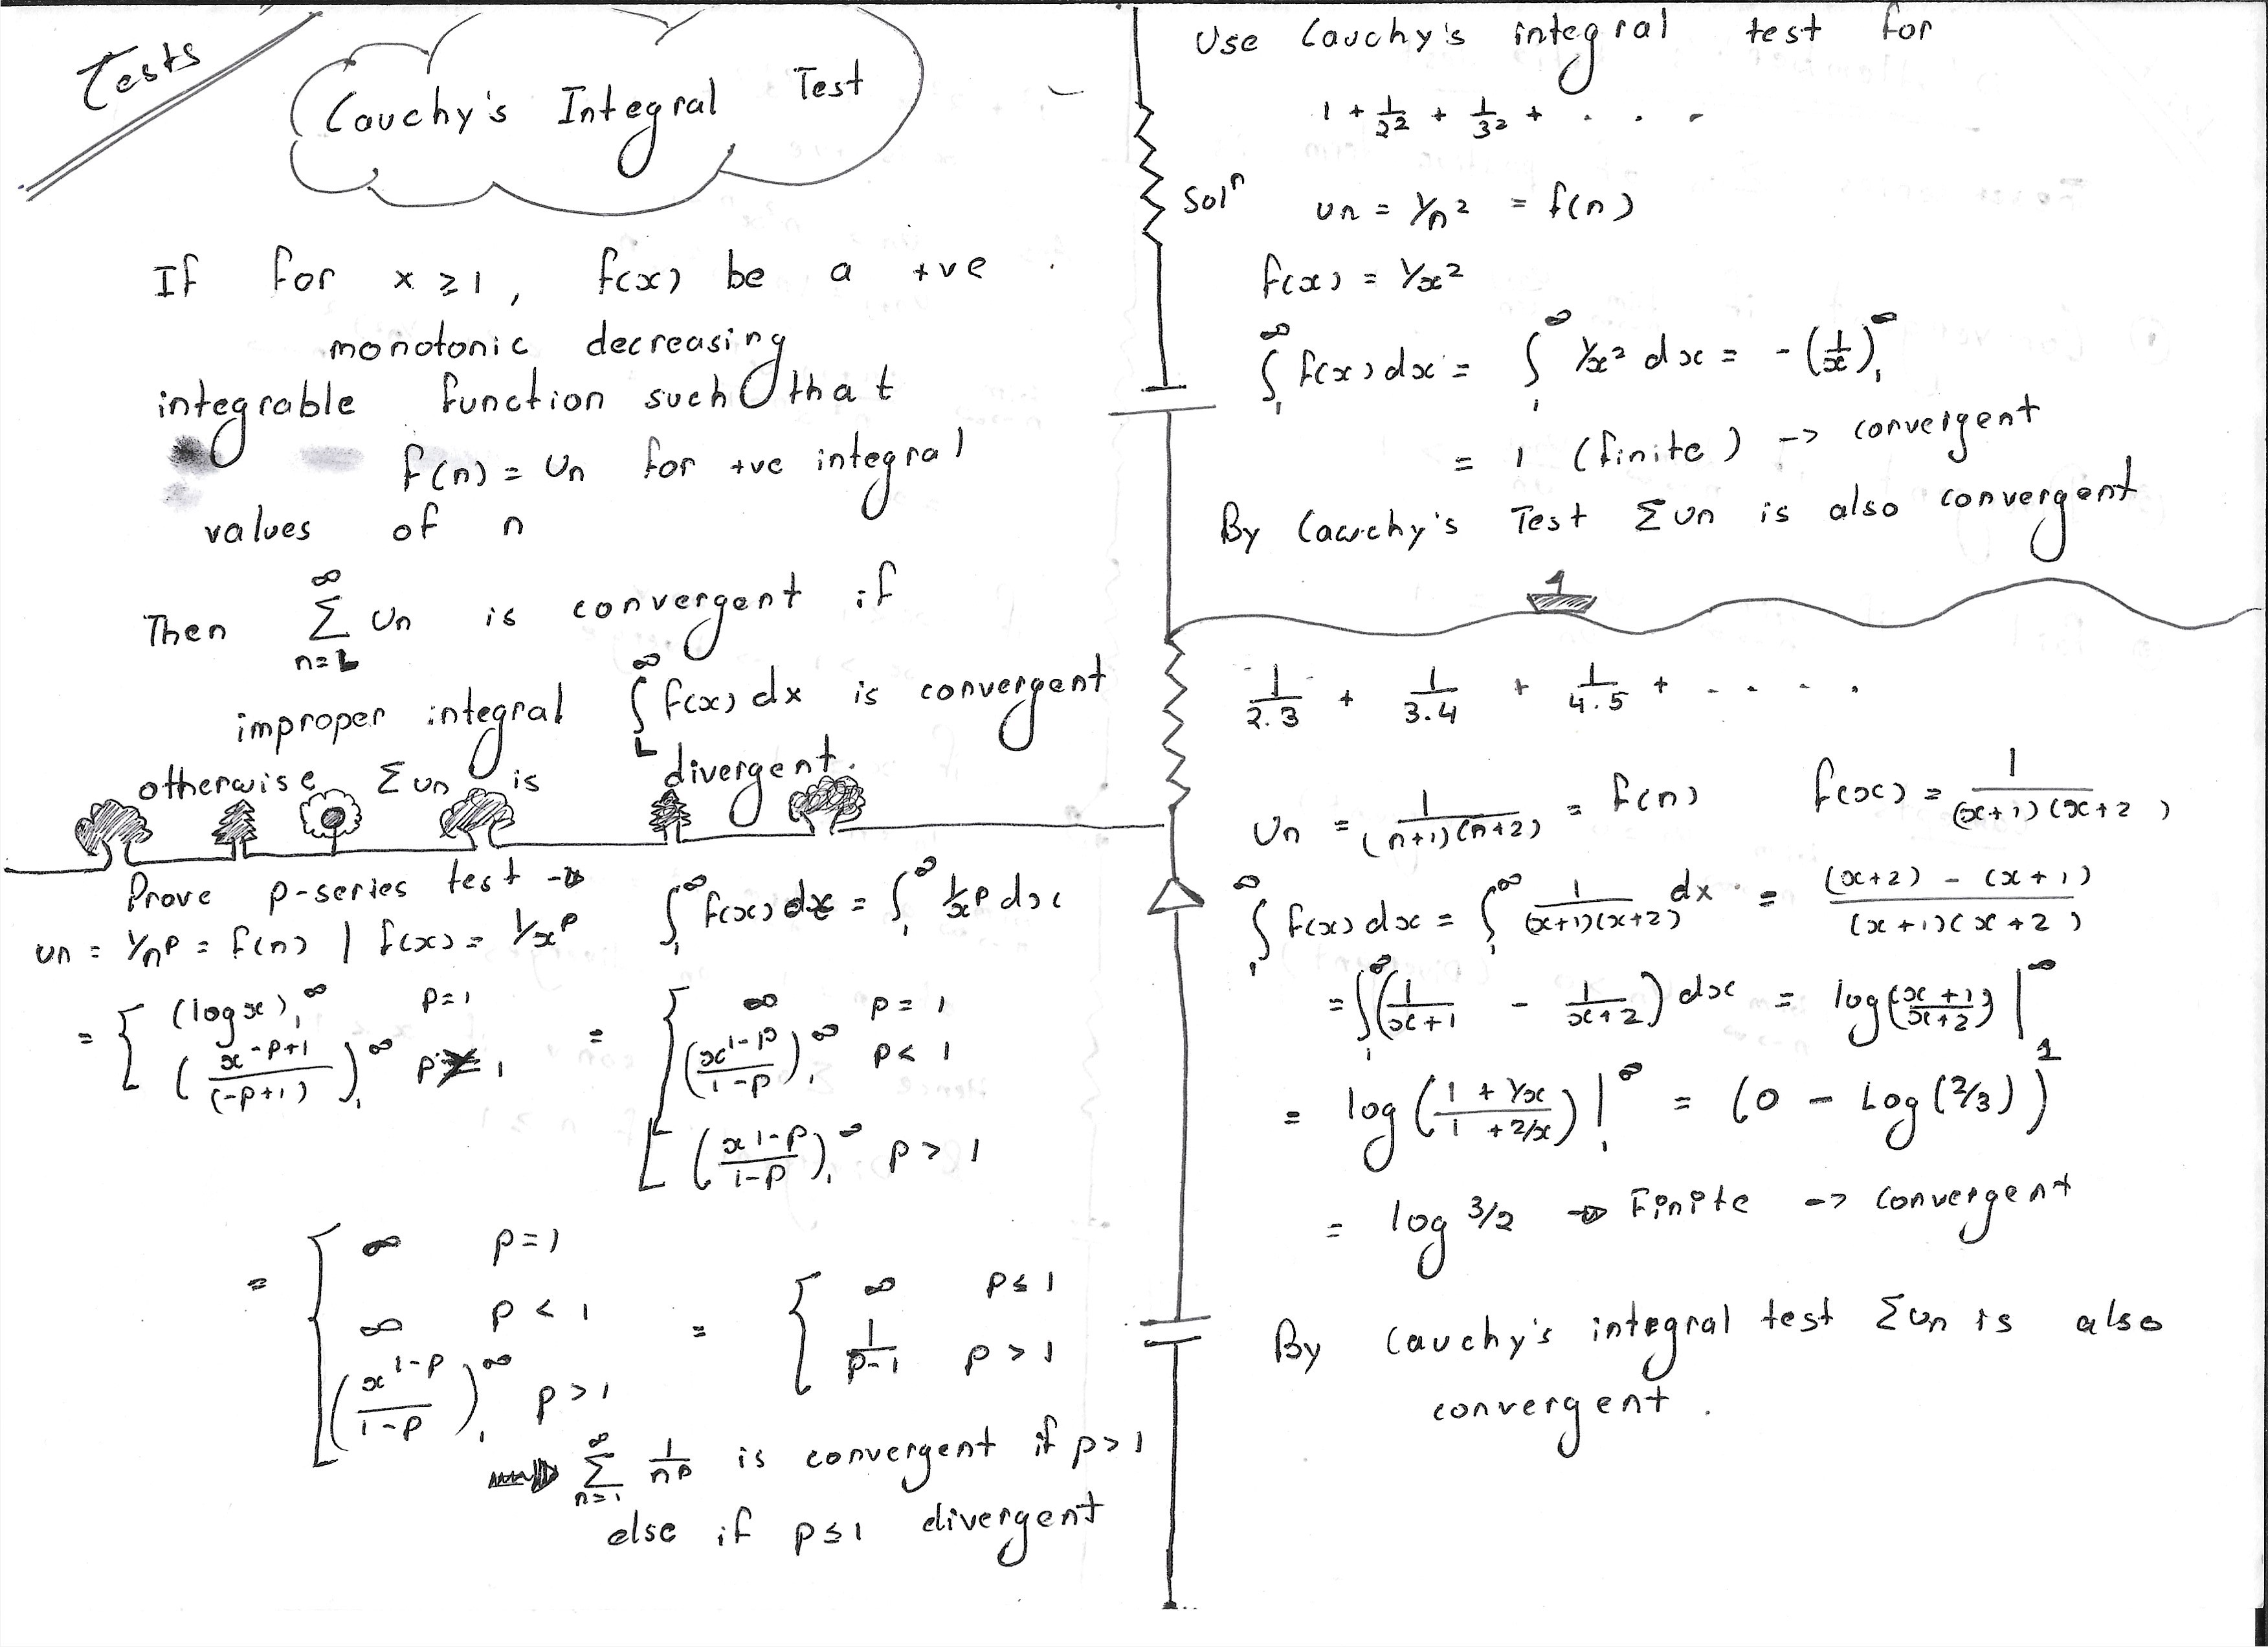 Tests
Cauchy's Integral Test
If for x ≥ 1, f(x) be a +ve
monotonic decreasing
integrable function such that
f(n) = Un for +ve integral
values of n
Then ∞Σn=1 Un is convergent if
improper integral ∫₁^∞ f(x) dx is convergent
otherwise Σun is divergent.
Prove p-series test →
un = 1/n^p = f(n) | f(x) = 1/x^p
∫₁^∞ f(x) dx = ∫₁^∞ 1/x^p dx
= { (log x)₁^∞ p=1
(x^(-p+1)/(-p+1))₁^∞ p ≠ 1
= { ∞ p = 1
(x^(1-p)/(1-p))₁^∞ p < 1
(x^(1-p)/(1-p))₁^∞ p > 1
= { ∞ p=1
∞ p < 1
(x^(1-p)/(1-p))₁^∞ p > 1
= { ∞ p ≤ 1
1/(p-1) p > 1
⇒ ∞Σn=1 1/n^p is convergent if p>1
else if p≤1 divergent
Use Cauchy's integral test for
1 + 1/2² + 1/3² + . . .
Solⁿ un = 1/n² = f(n)
f(x) = 1/x²
∫₁^∞ f(x) dx = ∫₁^∞ 1/x² dx = -(1/x)₁^∞
= 1 (finite) -> convergent
By Cauchy's Test Σun is also convergent
1/2.3 + 1/3.4 + 1/4.5 + . . . .
Un = 1/(n+1)(n+2) = f(n) f(x) = 1/(x+1)(x+2)
∫₁^∞ f(x) dx = ∫₁^∞ 1/(x+1)(x+2) dx = (x+2) - (x+1)/(x+1)(x+2)
= ∫₁^∞ (1/(x+1) - 1/(x+2)) dx = log((x+1)/(x+2)) |₁^∞
= log((1 + 1/x)/(1 + 2/x)) |₁^∞ = (0 - Log(2/3))
= log 3/2 → Finite -> convergent
By Cauchy's integral test Σun is also
convergent.